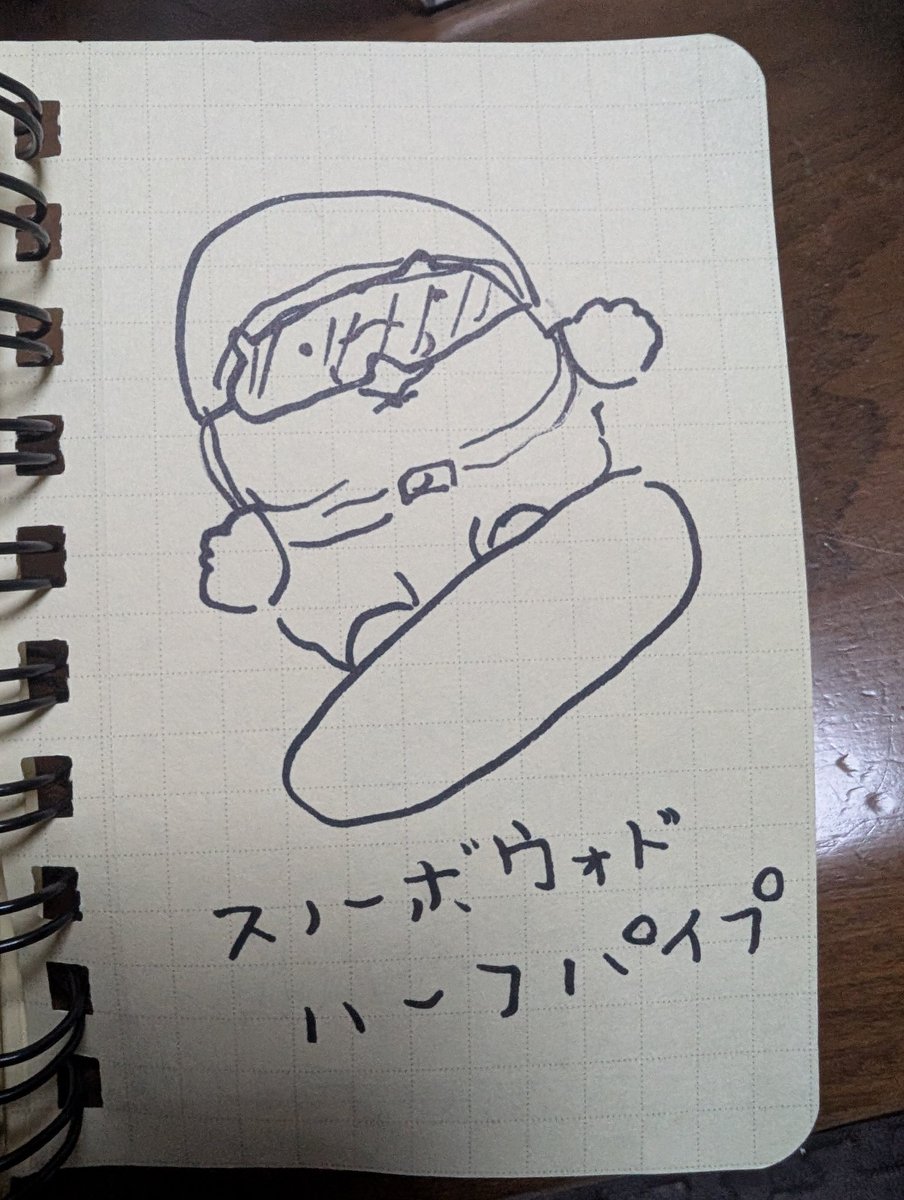 スノーボウォド
ハーフパイプ